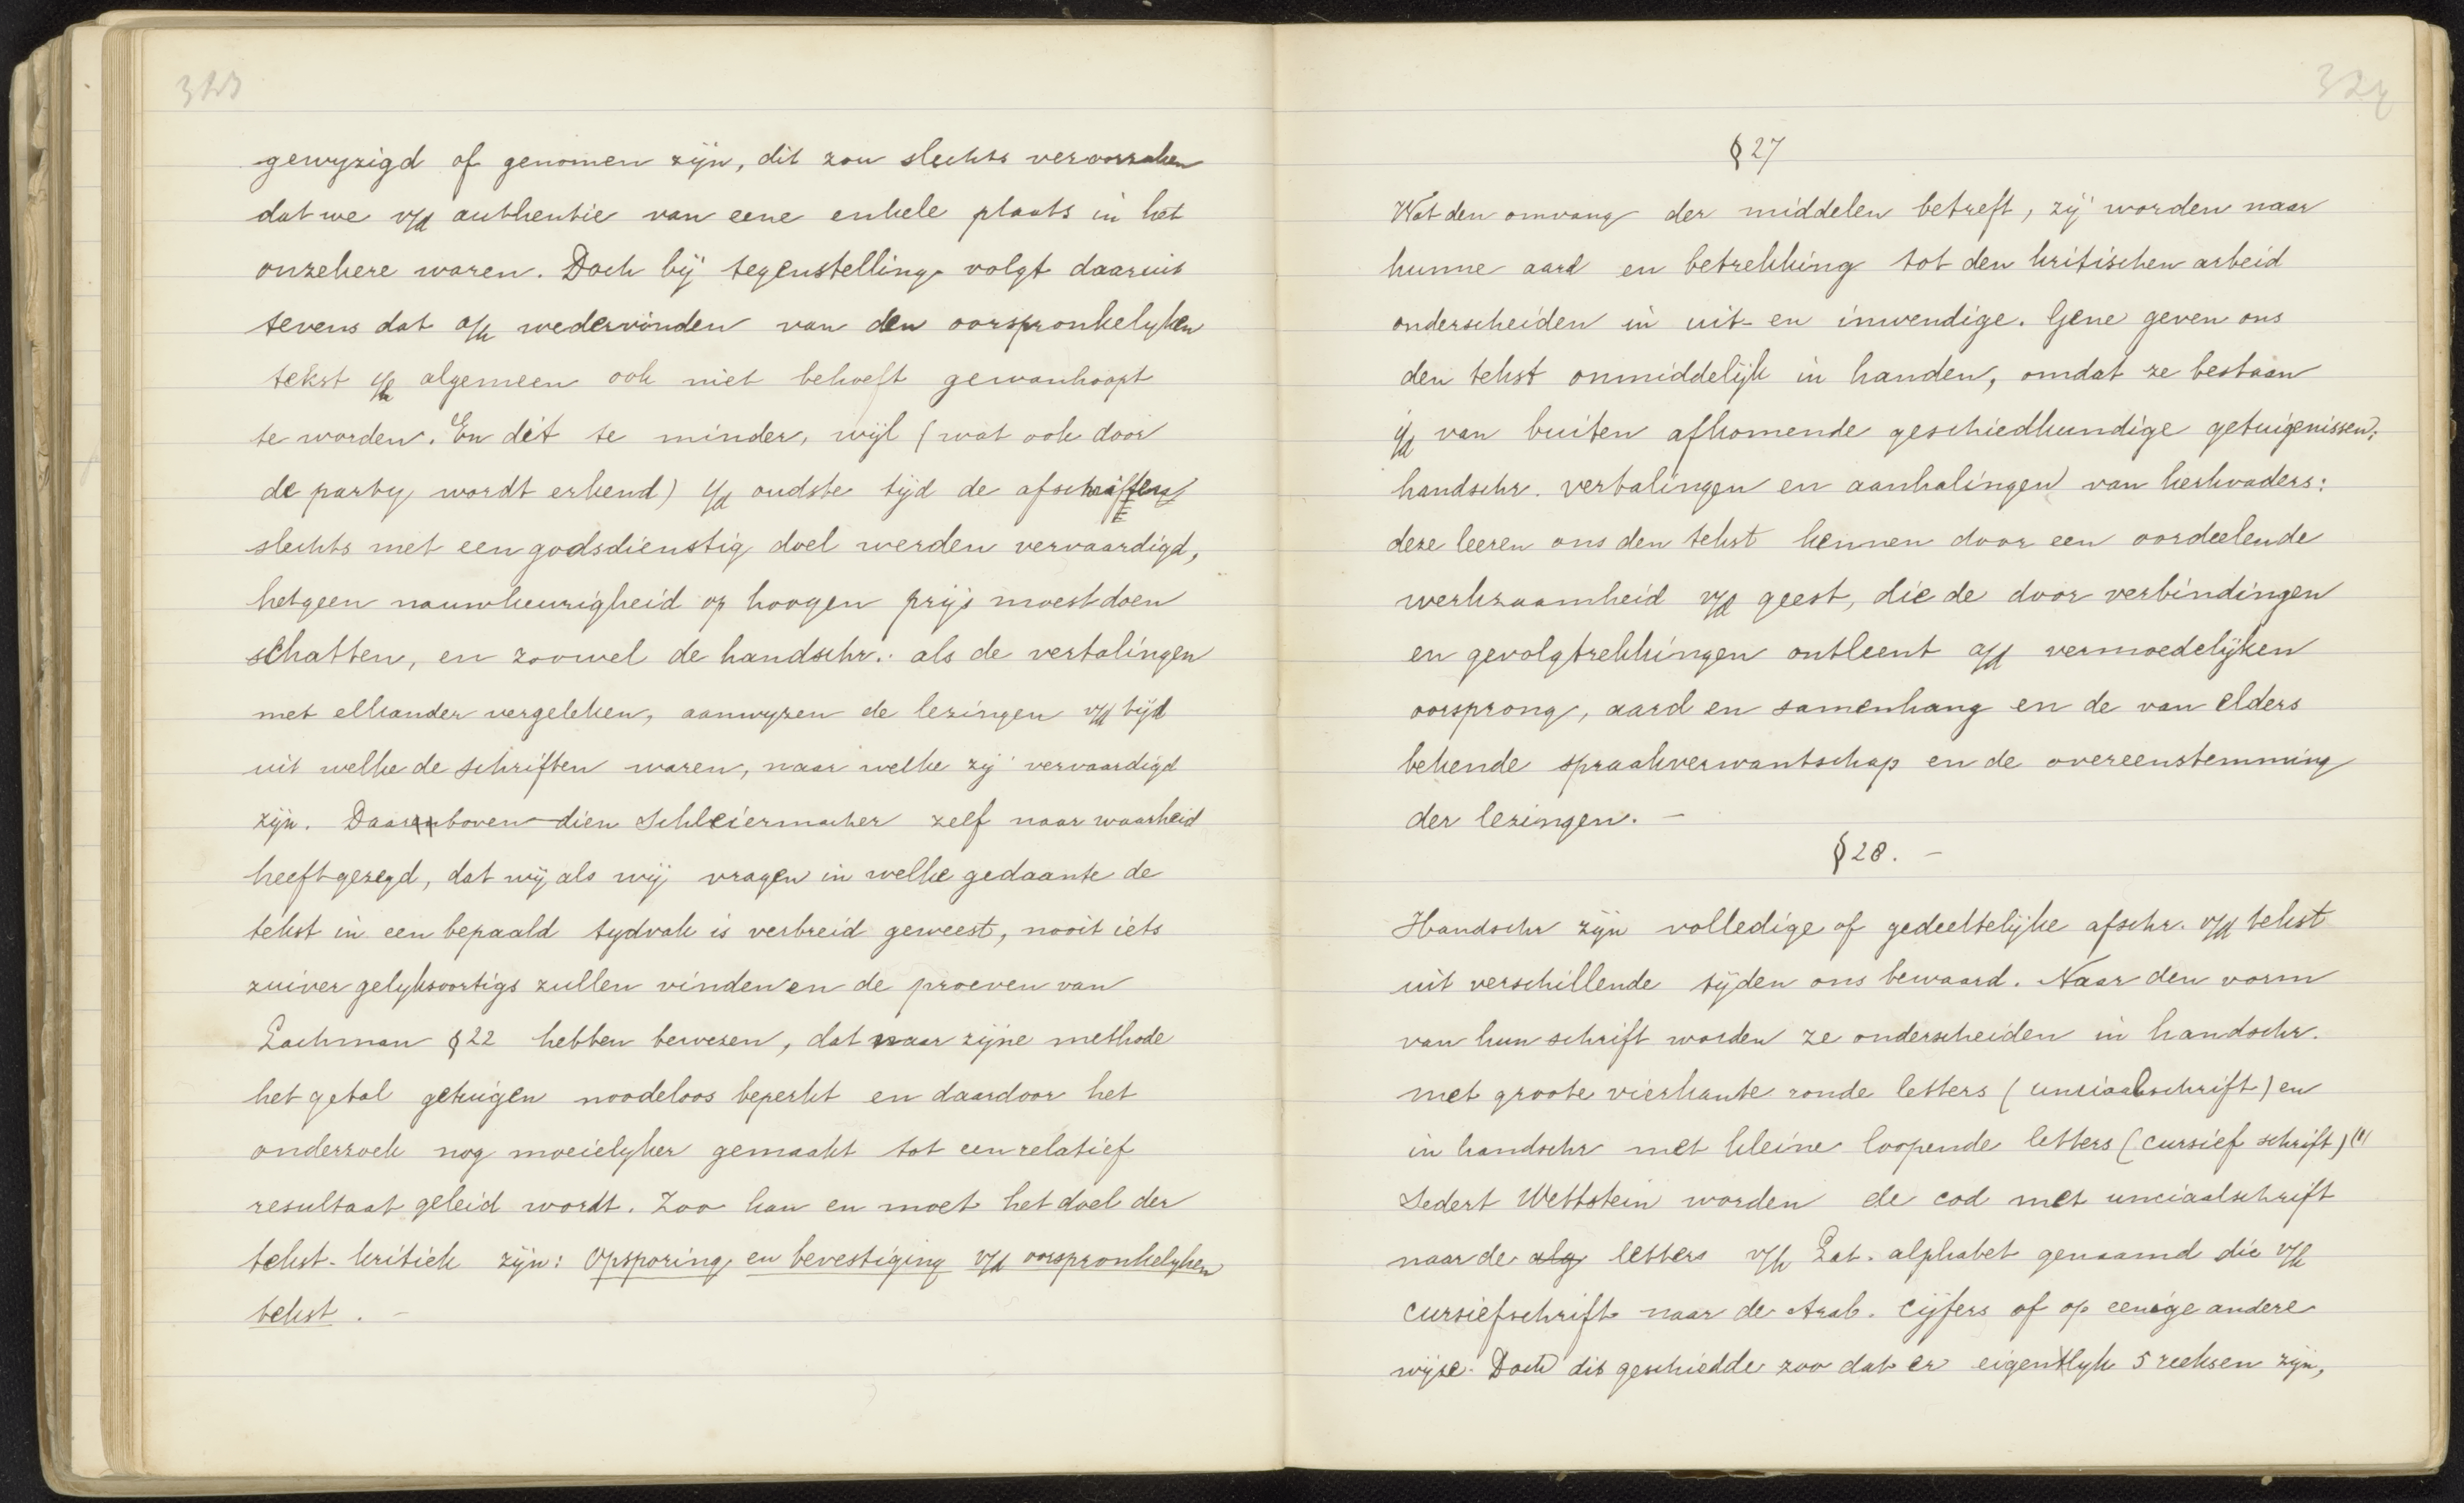 323
gewyzigd of genomen zijn, dit zou slechts veroorzaken
dat we v/d authentie van eene enkele plaats in het
onzekere waren. Doch bij tegenstelling volgt daaruit
tevens dat a/h wedervinden van den oorspronkelyken
tekst i/h algemeen ook niet behoeft gewanhoopt
te worden. En dit te minder, wijl (wat ook door
de party wordt erkend) i/d oudste tijd de afschriften
slechts met een godsdienstig doel werden vervaardigd,
hetgeen nauwkeurigheid op hoogen prijs moest doen
schatten, en zoowel de handschr. als de vertalingen
met elkander vergeleken, aanwyzen de lezingen v/d tijd
uit welke de schriften waren, naar welke zij vervaardigd
zijn. Daarenboven dien Schleiermacher zelf naar waarheid
heeft gezegd, dat wij als wij vragen in welke gedaante de
tekst in een bepaald tydvak is verbreid geweest, nooit iets
zuiver gelyksoortigs zullen vinden en de proeven van
Lachman § 22 hebben bewezen, dat naar zijne methode
het getal getuigen noodeloos beperkt en daardoor het
onderzoek nog moeielyker gemaakt tot een relatief
resultaat geleid wordt. Zoo kan en moet het doel der
tekst-kritiek zijn: Opsporing en bevestiging v/d oorspronkelyken
tekst. –
324
§ 27
Wat den omvang der middelen betreft, zij worden naar
hunne aard en betrekking tot den kritischen arbeid
onderscheiden in uit- en inwendige. Gene geven ons
den tekst onmiddelijk in handen, omdat ze bestaan
i/d van buiten afkomende geschiedkundige getuigenissen,
handschr. vertalingen en aanhalingen van kerkvaders:
deze leeren ons den tekst kennen door een oordeelende
werkzaamheid v/d geest, die de door verbindingen
en gevolgtrekkingen ontleent a/d vermoedelijken
oorsprong, aard en samenhang en de van elders
bekende spraakverwantschap en de overeenstemming
der lezingen. –
§ 28. –
Handschr zijn volledige of gedeeltelijke afschr. v/d tekst
uit verschillende tijden ons bewaard. Naar den vorm
van hun schrift worden ze onderscheiden in handschr.
met groote vierkante ronde letters (unciaalschrift) en
in handschr met kleine loopende letters (cursief schrift) (1)
Sedert Wettstein worden de cod met unciaalschrift
naar de alg letters v/h Lat. alphabet genaamd die v/h
cursiefschrift naar de Arab. cijfers of op eenige andere
wijze. Doch dit geschiedde zoo dat er eigentlyk 5 reeksen zijn,